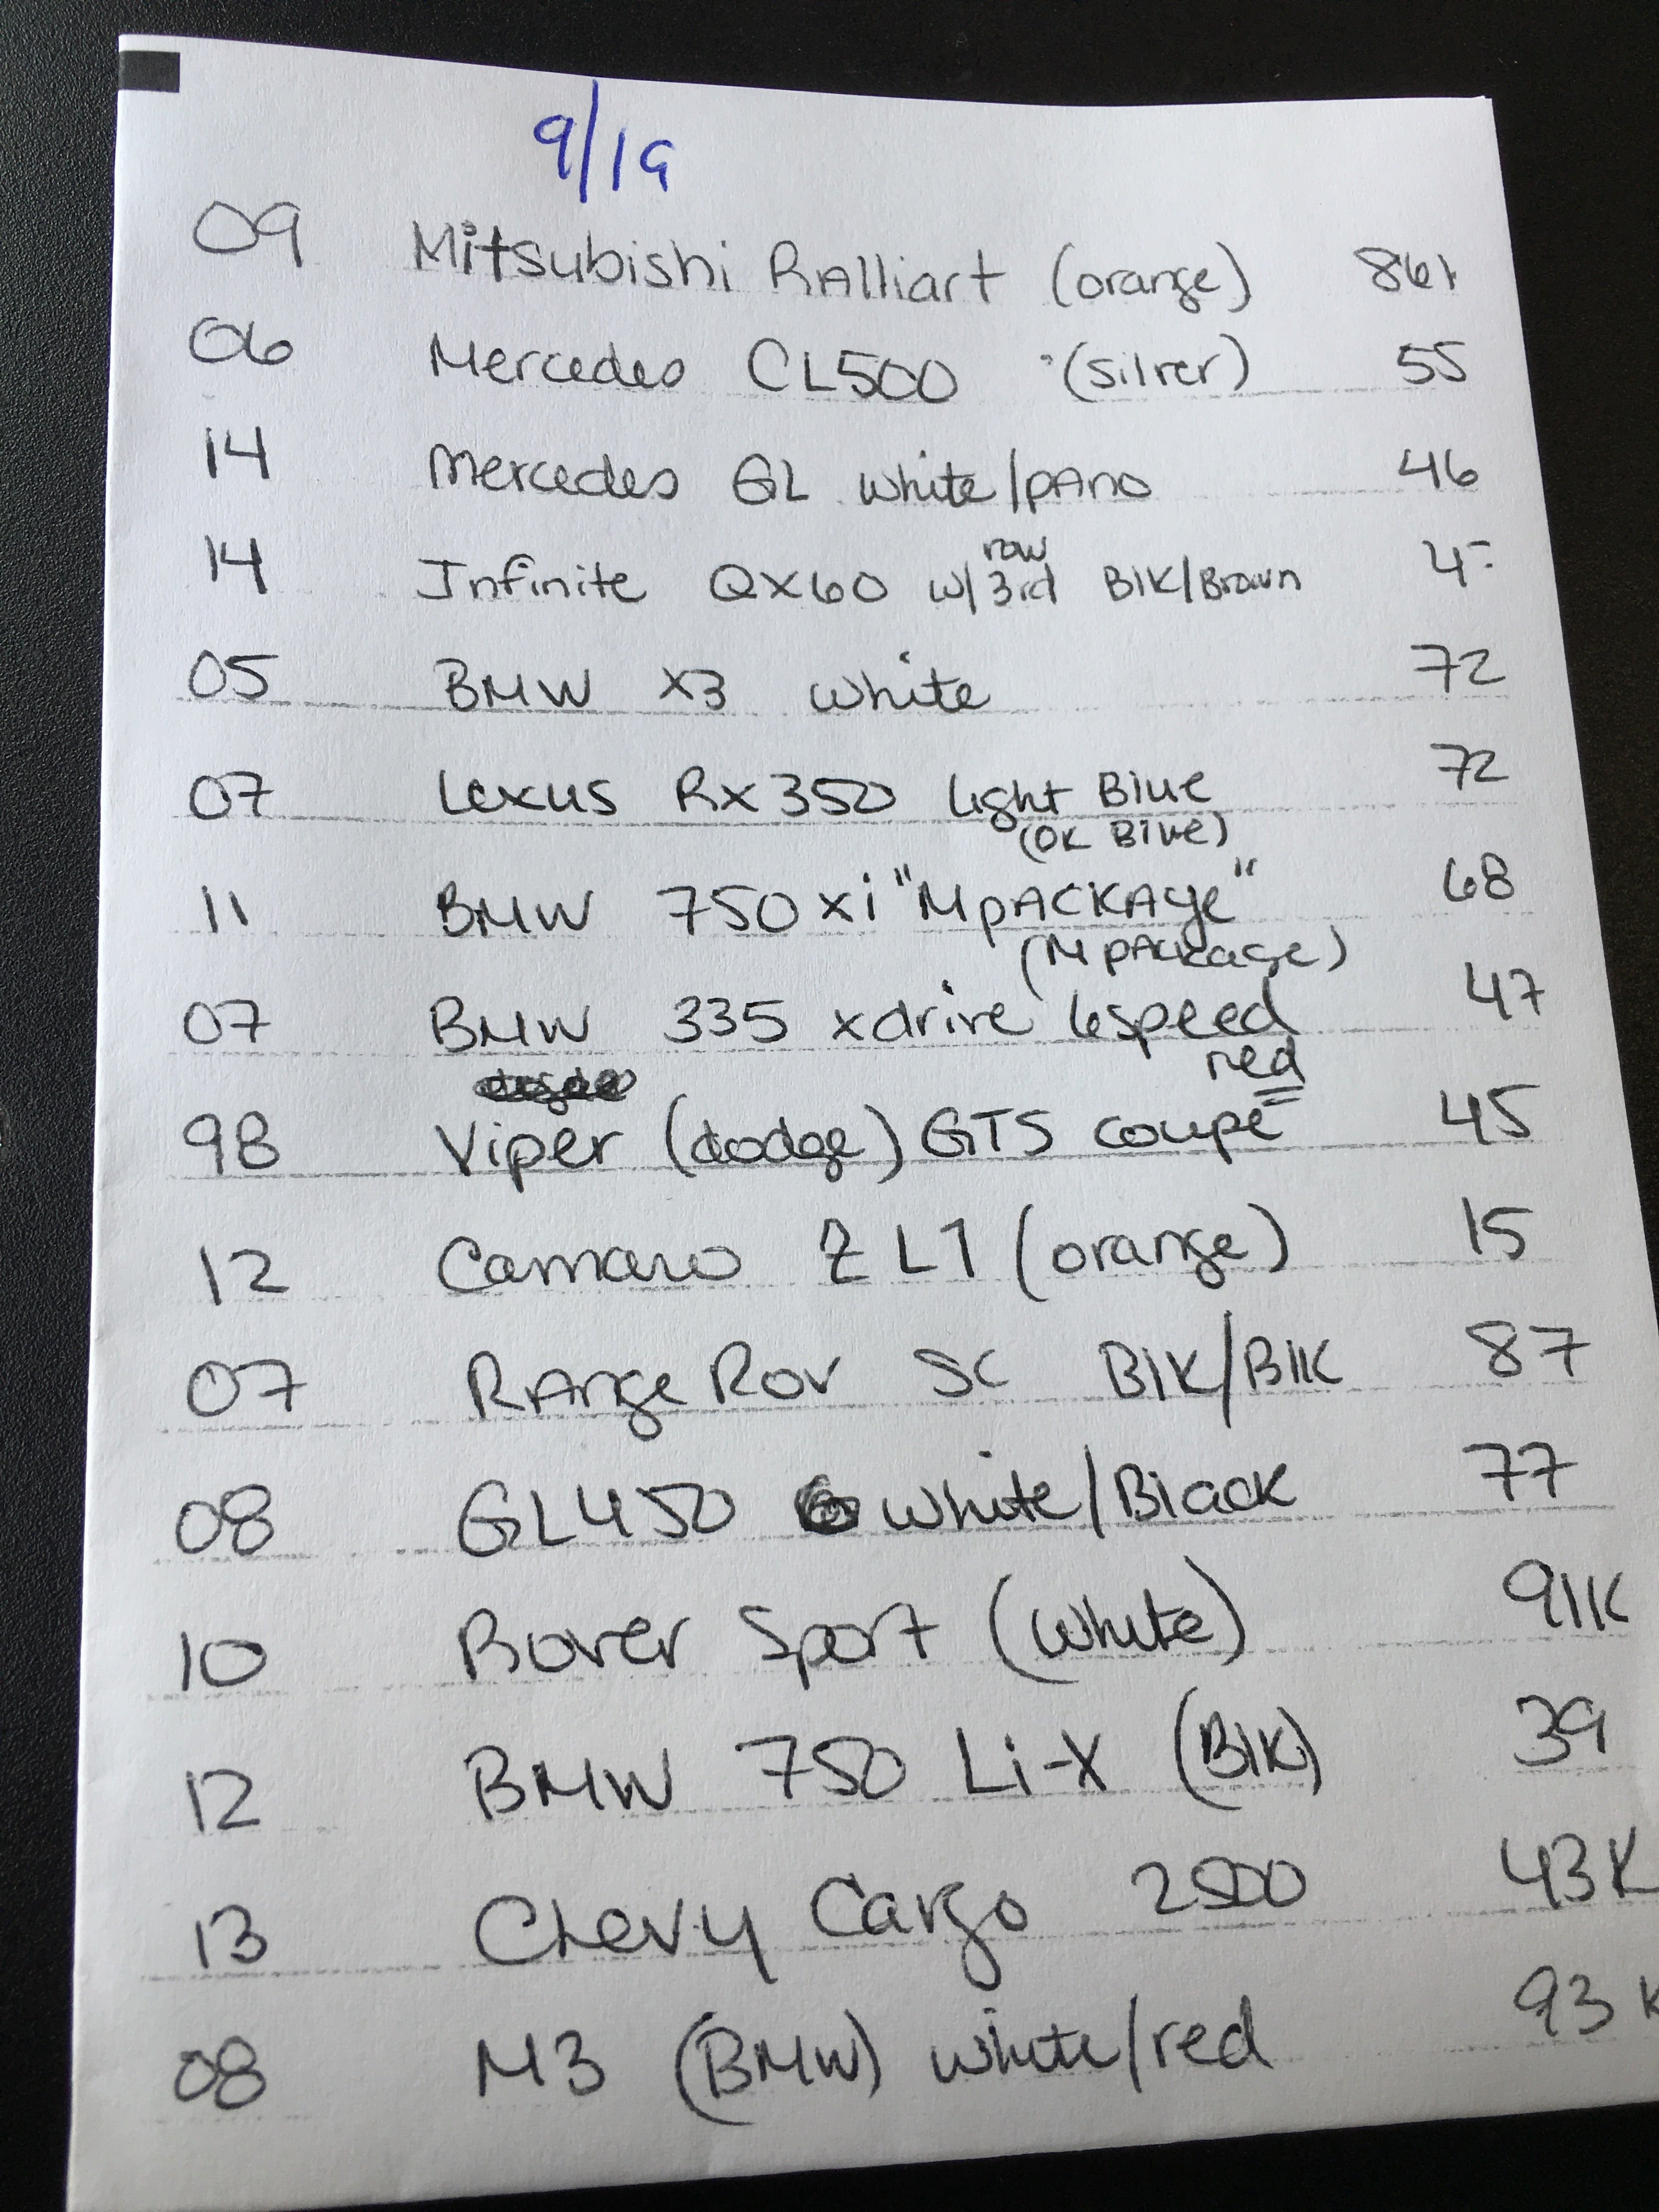 9/19
09 Mitsubishi RAlliart (orange)
06 Mercedes CL500 (silver) 55
14 Mercedes GL white/pAno 46
row
14 Infinite QX60 w/ 3rd Blk/Brown
05 BMW X3 white 72
07 Lexus Rx350 light Blue 72
(DK Blue)
11 BMW 750xi "MpACKAge" 68
(M pAckage)
07 BMW 335 xdrive 6speed 47
red
98 Viper (dodge) GTS coupe 45
12 Camaro ZL1 (orange) 15
07 RAnge Rov SC Blk/Blk 87
08 GL450 white/Black 77
10 Rover Sport (white) 91K
12 BMW 750 Li-X (Blk) 39
13 Chevy Cargo 2500 43K
08 M3 (BMW) white/red 93K